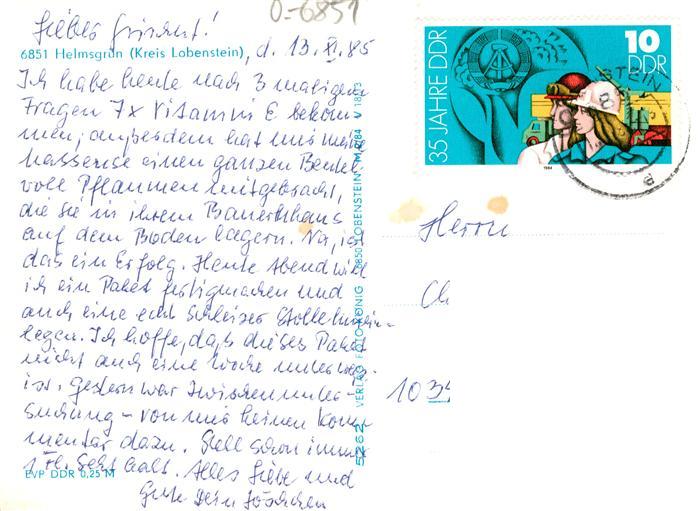 0-6851
Liebes
6851 Helmsgrün (Kreis Lobenstein), d. 13. XI. 85
Ich habe heute nach 3 maligem
Fragen 7x Vitamin E bekom-
men, außerdem hat uns meine
einen ganzen Beutel
voll Pflaumen mitgebracht,
die sie in ihrem Bauernhaus
auf dem Boden lagern. Na, ist
das ein Erfolg. Heute Abend will
ich ein Paket fertigmachen und
auch eine echt Schleizer Stolle hinein-
legen. Ich hoffe, daß dieses Paket
nicht auch eine Woche unterwegs
ist. Gestern war Zwischenunter-
suchung - von uns keinen Kom-
mentar dazu. Stell schon immer
1 Fl. Sekt kalt. Alles Liebe und
Gute Dein
EVP DDR 0,25 M
5262 VERLAG FOTO-KÖNIG 6850 LOBENSTEIN
35 JAHRE DDR
10
DDR
1984
Herrn
Ch
103